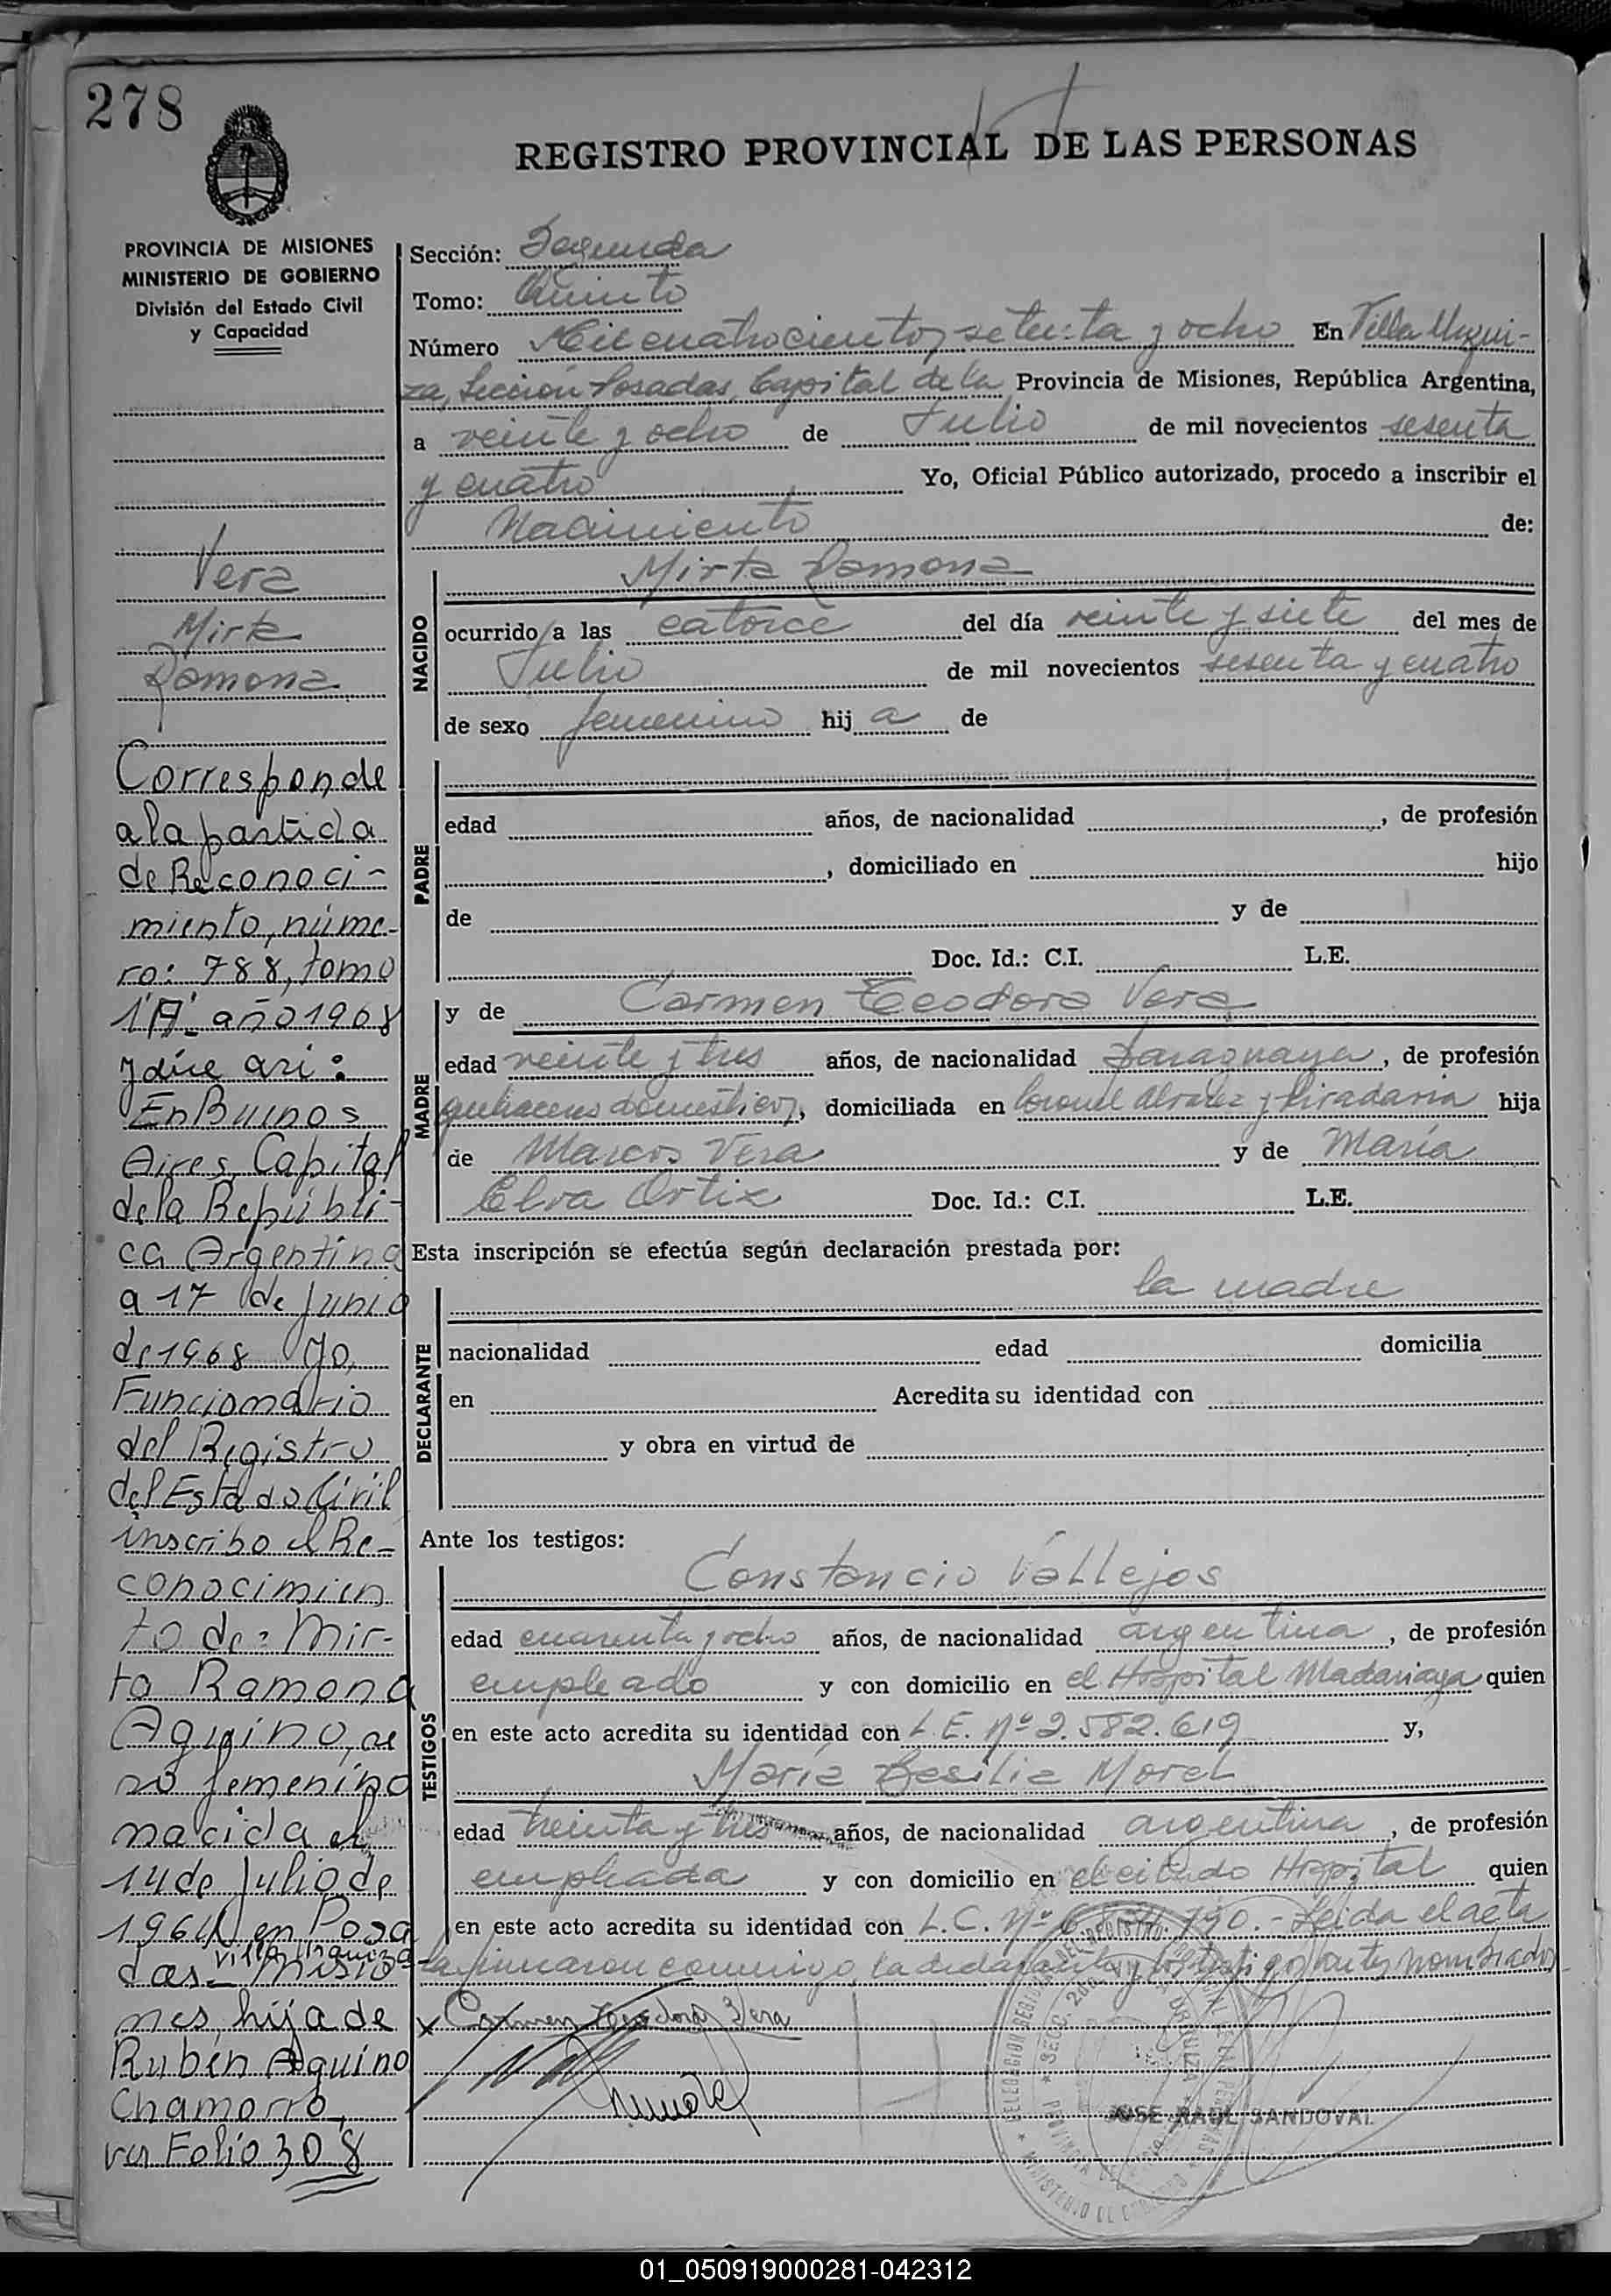 278
REGISTRO PROVINCIAL DE LAS PERSONAS
PROVINCIA DE MISIONES
MINISTERIO DE GOBIERNO
División del Estado Civil
y Capacidad
Vera
Mirta
Ramona
Corresponde
a la partida
de Reconoci-
miento, núme-
ro: 788, tomo
1ºA- año 1968
y dice asi:
En Buenos
Aires, Capital
de la Repúbli-
ca Argentina
a 17 de Junio
de 1968 Yo,
Funcionario
del Registro
del Estado Civil
inscribo el Re-
conocimien
to de: Mir-
ta Ramona
Aquino, se
xo femenino
nacida el
14 de Julio de
1964 en Posa
das- Villa Urquiza- Misio
nes, hija de
Rubén Aquino
Chamorro,
ver Folio 308
Sección: Segunda
Tomo: Quinto
Número Mil cuatrocientos setenta y ocho En Villa Urqui-
za, Sección Posadas, Capital de la Provincia de Misiones, República Argentina,
a veinte y ocho de Julio de mil novecientos sesenta
y cuatro Yo, Oficial Público autorizado, procedo a inscribir el
Nacimiento de:
NACIDO
Mirta Ramona
ocurrido a las catorce del día veinte y siete del mes de
Julio de mil novecientos sesenta y cuatro
de sexo femenino hij a de
PADRE
edad años, de nacionalidad , de profesión
, domiciliado en hijo
de y de
Doc. Id.: C.I. L.E.
MADRE
y de Carmen Teodora Vera
edad veinte y tres años, de nacionalidad paraguaya, de profesión
quehaceres domésticos, domiciliada en Coronel Alvarez y hija
de Marcos Vera y de María
Elva Ortiz Doc. Id.: C.I. L.E.
Esta inscripción se efectúa según declaración prestada por:
DECLARANTE
la madre
nacionalidad edad domicilia
en Acredita su identidad con
y obra en virtud de
Ante los testigos:
TESTIGOS
Constancio Vallejos
edad cuarenta y ocho años, de nacionalidad argentina, de profesión
empleado y con domicilio en el Hospital Madariaga quien
en este acto acredita su identidad con L.E. Nº 2.582.619 y,
María Basilia Morel
edad treinta y tres años, de nacionalidad argentina, de profesión
empleada y con domicilio en el citado Hospital quien
en este acto acredita su identidad con L.C. Nº 190.- Leida el acta
la firmaron conmigo, la declarante y los testigos antes nombrados
x Carmen Teodora Vera
JOSE RAUL SANDOVAL
01_050919000281-042312